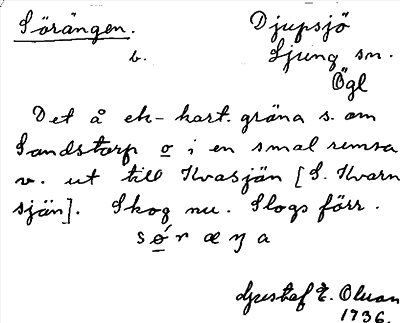 Sörängen. Djupsjö
b. Ljung sn.
Ögl
Det å ek-kart. gräna s. om
Sandstorp o i en smal remsa
v. ut till Kvasjän [S. Kvarn
sjän]. Skog nu. Slogs förr.
sǿr æŋa
Gustaf E. Olson
1736.